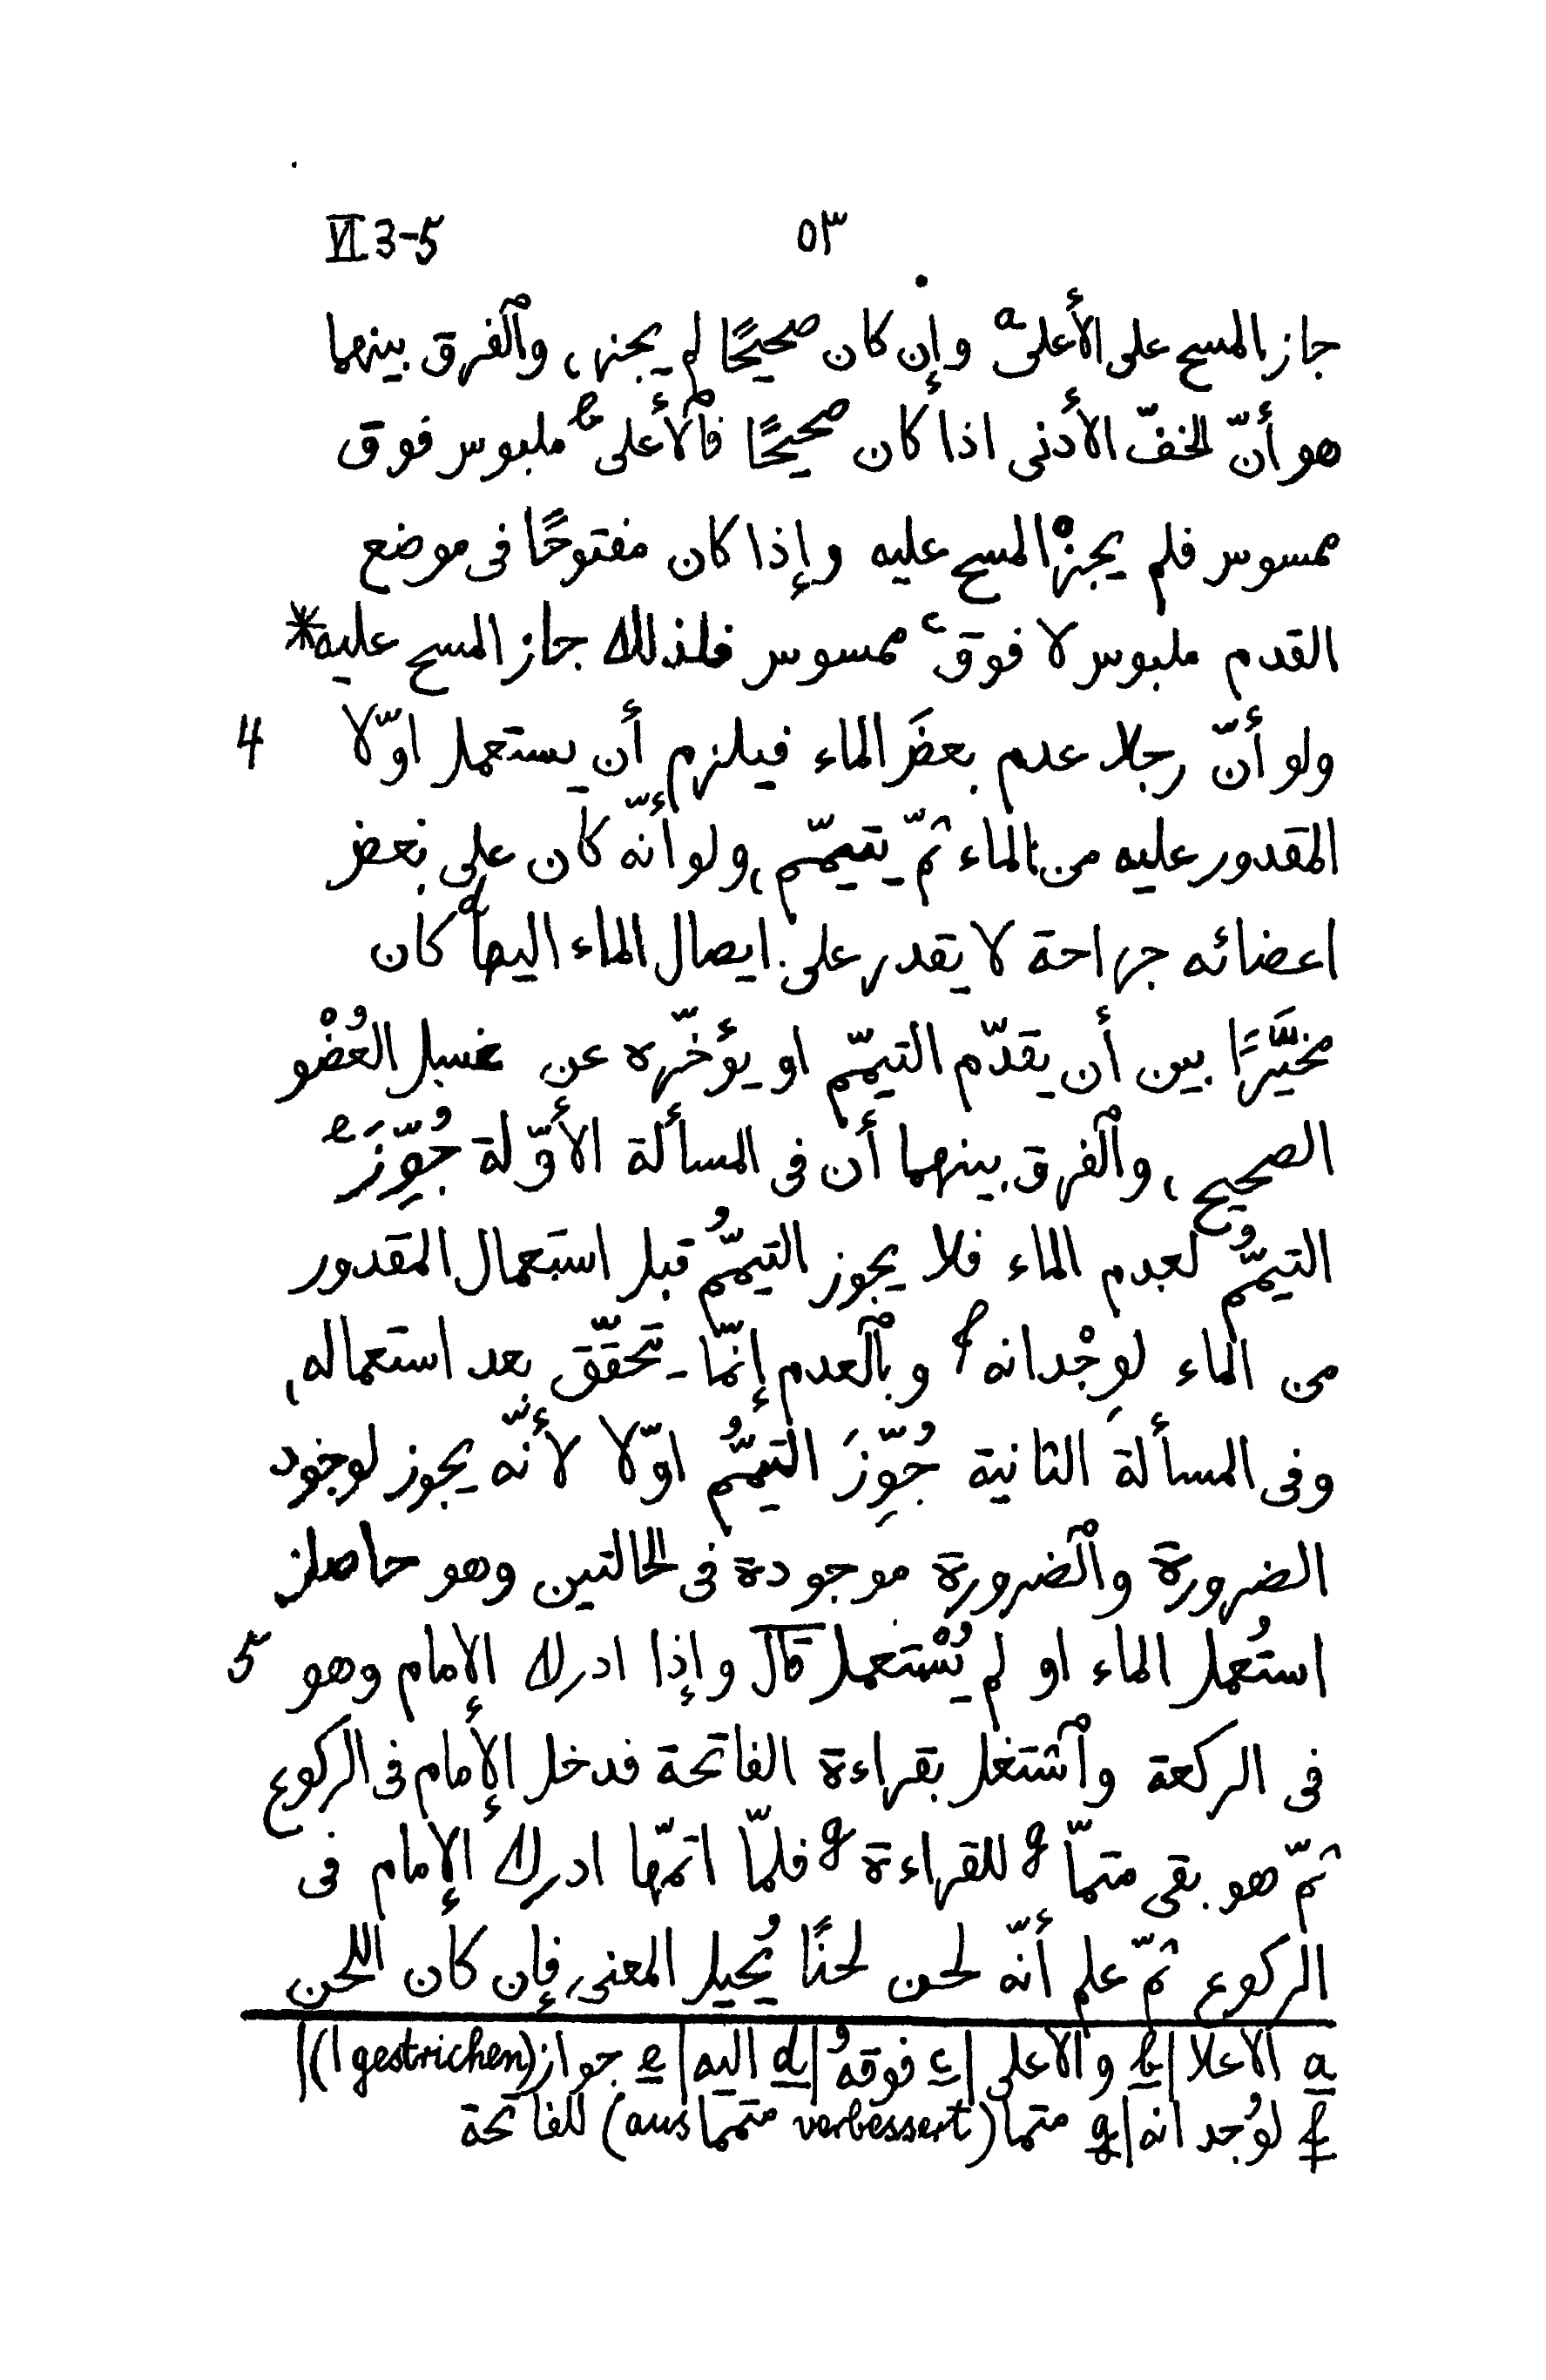 VI 3-5 ٥٣
جاز المسح على الأعلى a وإن كان صحيحًا لم يجز، وٱلفرق بينهما
هو أنّ الخفّ الأدنى اذا كان صحيحًا فٱلأعلى b ملبوس فوق
ممسوس فلم يجزْ المسح عليه وإذا كان مفتوحًا فى موضع
القدم ملبوس لا فوق c ممسوس فلذلك جاز المسح عليه*
ولو أنّ رجلا عدم بعضَ الماء فيلزم أن يستعمل اوّلا 4
المقدور عليه من الماء ثمّ يتيمّم، ولو أنّه كان على بعض
اعضائه جراحة لا يقدر على ايصال الماء اليها d كان
مخيَّرًا بين أن يقدّم التيمّم او يؤخّره عن غسل العُضْو
الصحيح، وٱلفرق بينهما أن فى المسألة الأوّلة جُوِّزَ e
التيمّمُ لعدم الماء فلا يجوز التيمّمُ قبل استعمال المقدور
من الماء لوِجْدانه f وبٱلعدم إنّما يتحقّق بعد استعماله،
وفى المسألة الثانية جُوِّزَ التيمّمُ اوّلا لأنّه يجوز لوجود
الضرورة وٱلضرورة موجودة فى الحالتين وهو حاصل
استُعمل الماء او لم يُسْتعمل قال وإذا ادرك الإمام وهو 5
فى الركعة وٱشتغل بقراءة الفاتحة فدخل الإمام فى الركوع
ثمّ هو بقى متمّا g للقراءة g فلمّا اتمّها ادرك الإمام فى
الركوع ثمّ علم أنّه لحن لحنًا يُحيل المعنى، فإن كان اللحن
a الاعلا | b والاعلى | c فوقهُ | d اليه | e جواز (ا gestrichen) |
f لوُجدانه | g متما (aus متمما verbessert) للفاتحة